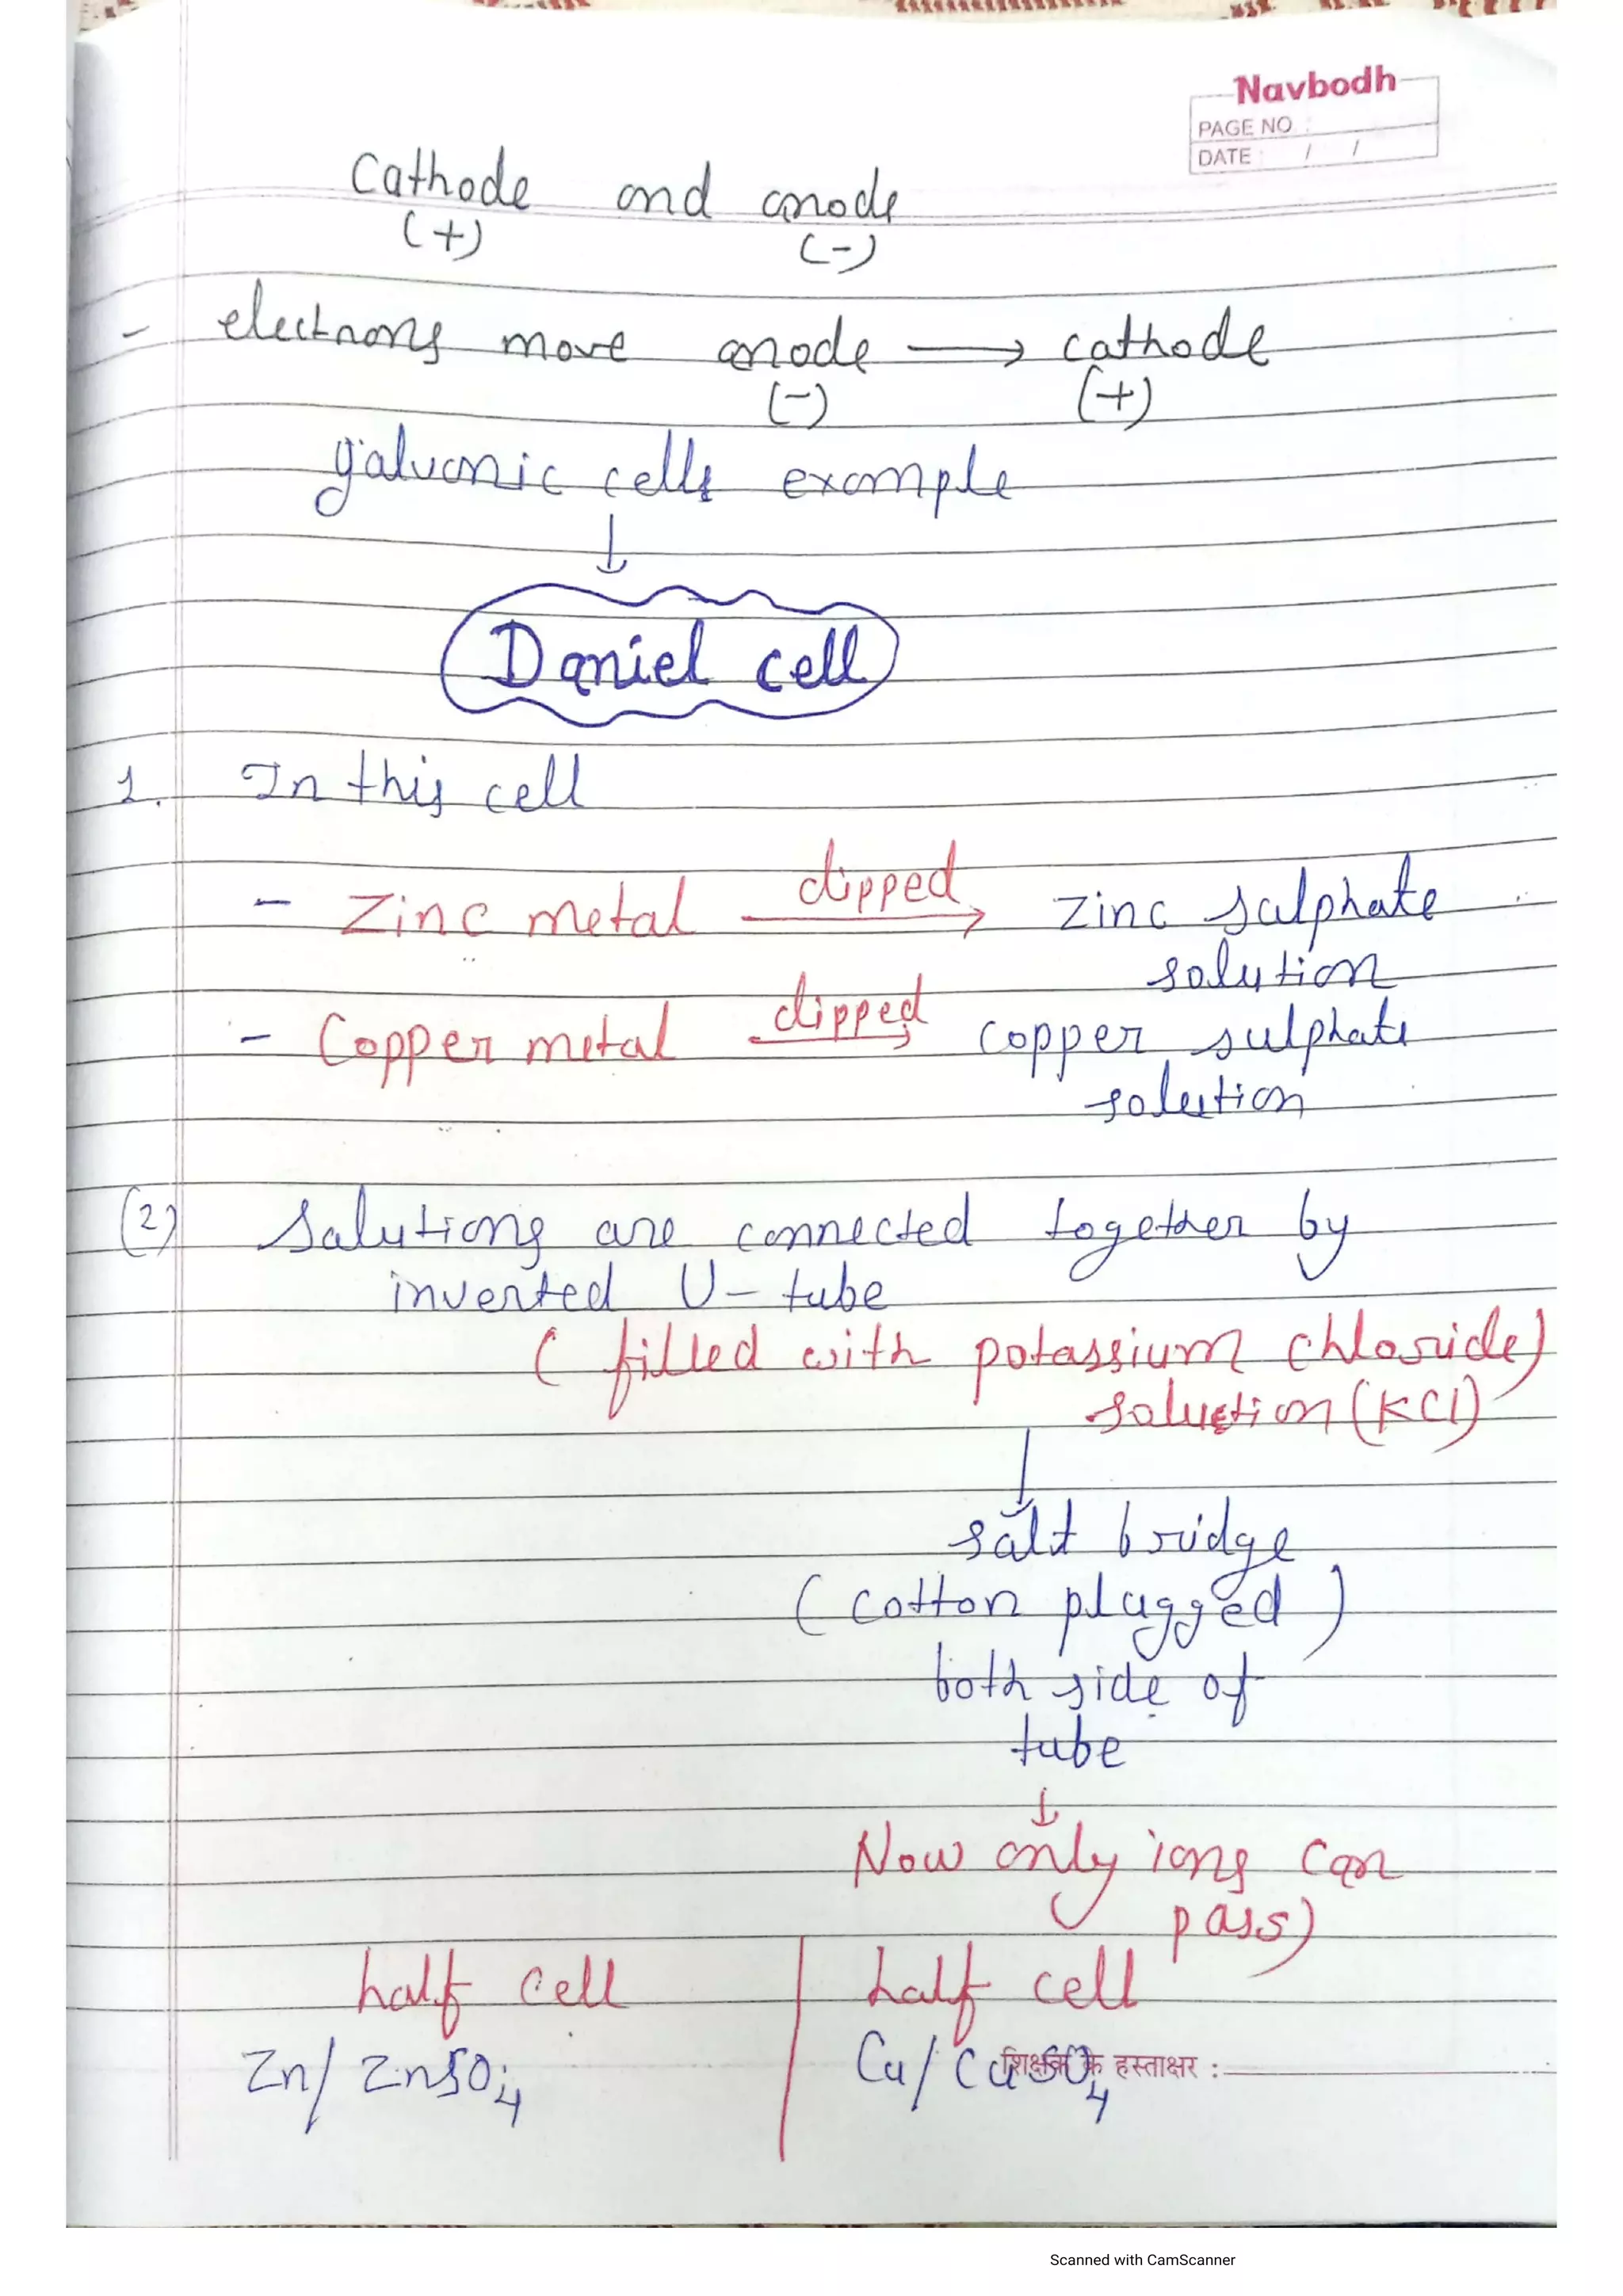 Navbodh
PAGE NO :
DATE : / /
Cathode and anode
(+) (-)
- electrons move anode → cathode
(-) (+)
galvanic cells example
↓
Daniel cell
1. In this cell
- Zinc metal dipped → zinc sulphate
solution
- Copper metal dipped → copper sulphate
solution
(2) Solutions are connected together by
inverted U-tube
( filled with potassium chloride)
solution (KCl)
↓
salt bridge
( cotton plugged )
both side of
tube
↓
Now only ions can
pass)
half cell | half cell
Zn/ZnSO4 | Cu/CuSO4
शिक्षक के हस्ताक्षर :
Scanned with CamScanner